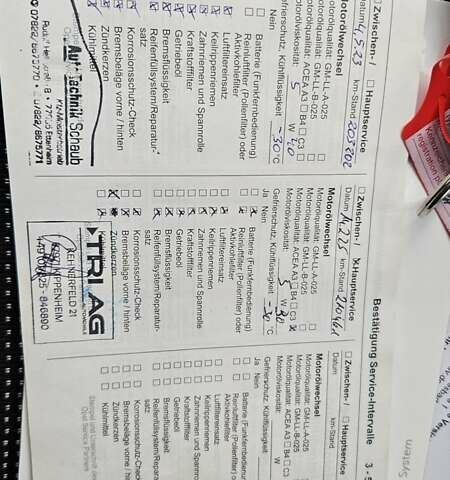 Bestätigung Service-Intervalle
3 - 5
System
Zwischen- /
Hauptservice
Datum 4.5.23 km-Stand 203802
Motorölwechsel
Motorölqualität: GM-LL-A-025
Motorölqualität: GM-LL-B-025
Motorölqualität: ACEA A3 B4 C3
Motorölviskosität: 5 W 40
Gefrierschutz, Kühlflüssigkeit -30 °C
Nein
Batterie (Funkfernbedienung)
Reinluftfilter (Pollenfilter) oder
Aktivkohlefilter
Luftfiltereinsatz
Keilrippenriemen
Zahnriemen und Spannrolle
Kraftstofffilter
Getriebeöl
Bremsflüssigkeit
Reifenfüllsystem/Reparatur-
satz
Korrosionsschutz-Check
Bremsbeläge vorne / hinten
Zündkerzen
Kühlmittel
Auto Technik Schaub
77955 Ettenheim
07822/8675770
07822/8675771
Zwischen- /
Hauptservice
Datum km-Stand 210461
Motorölwechsel
Motorölqualität: GM-LL-A-025
Motorölqualität: GM-LL-B-025
Motorölqualität: ACEA A3 B4 C3
Motorölviskosität: 5 W 30
Gefrierschutz, Kühlflüssigkeit -30 °C
Ja Nein
Batterie (Funkfernbedienung)
Reinluftfilter (Pollenfilter) oder
Aktivkohlefilter
Luftfiltereinsatz
Keilrippenriemen
Zahnriemen und Spannrolle
Kraftstofffilter
Getriebeöl
Bremsflüssigkeit
Reifenfüllsystem/Reparatur-
satz
Korrosionsschutz-Check
Bremsbeläge vorne / hinten
Zündkerzen
TRIAG
Zwischen- /
Hauptservice
Datum km-Stand
Motorölwechsel
Motorölqualität: GM-LL-A-025
Motorölqualität: GM-LL-B-025
Motorölqualität: ACEA A3 B4 C3
Motorölviskosität:
Gefrierschutz, Kühlflüssigkeit
Ja Nein
Batterie (Funkfernbedienung)
Reinluftfilter (Pollenfilter) o
Aktivkohlefilter
Luftfiltereinsatz
Keilrippenriemen
Zahnriemen und Spannrolle
Kraftstofffilter
Getriebeöl
Bremsflüssigkeit
Reifenfüllsystem/Repara
satz
Korrosionsschutz-Check
Bremsbeläge vorne / h
Zündkerzen
Kühlmittel